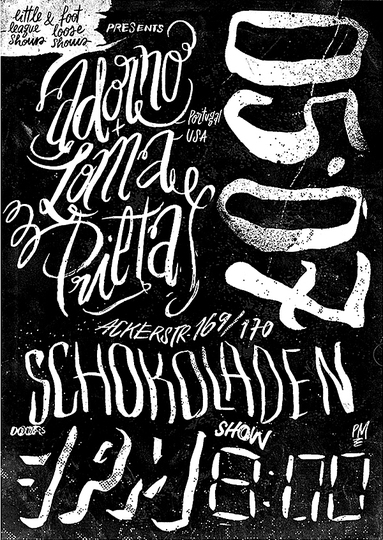 little & foot
league loose
shows shows
PRESENTS
Adorno
Portugal
+
USA
Loma
Prieta
05.07
ACKERSTR. 169/170
SCHOKOLADEN
DOORS
7PM
SHOW
8:00
PM